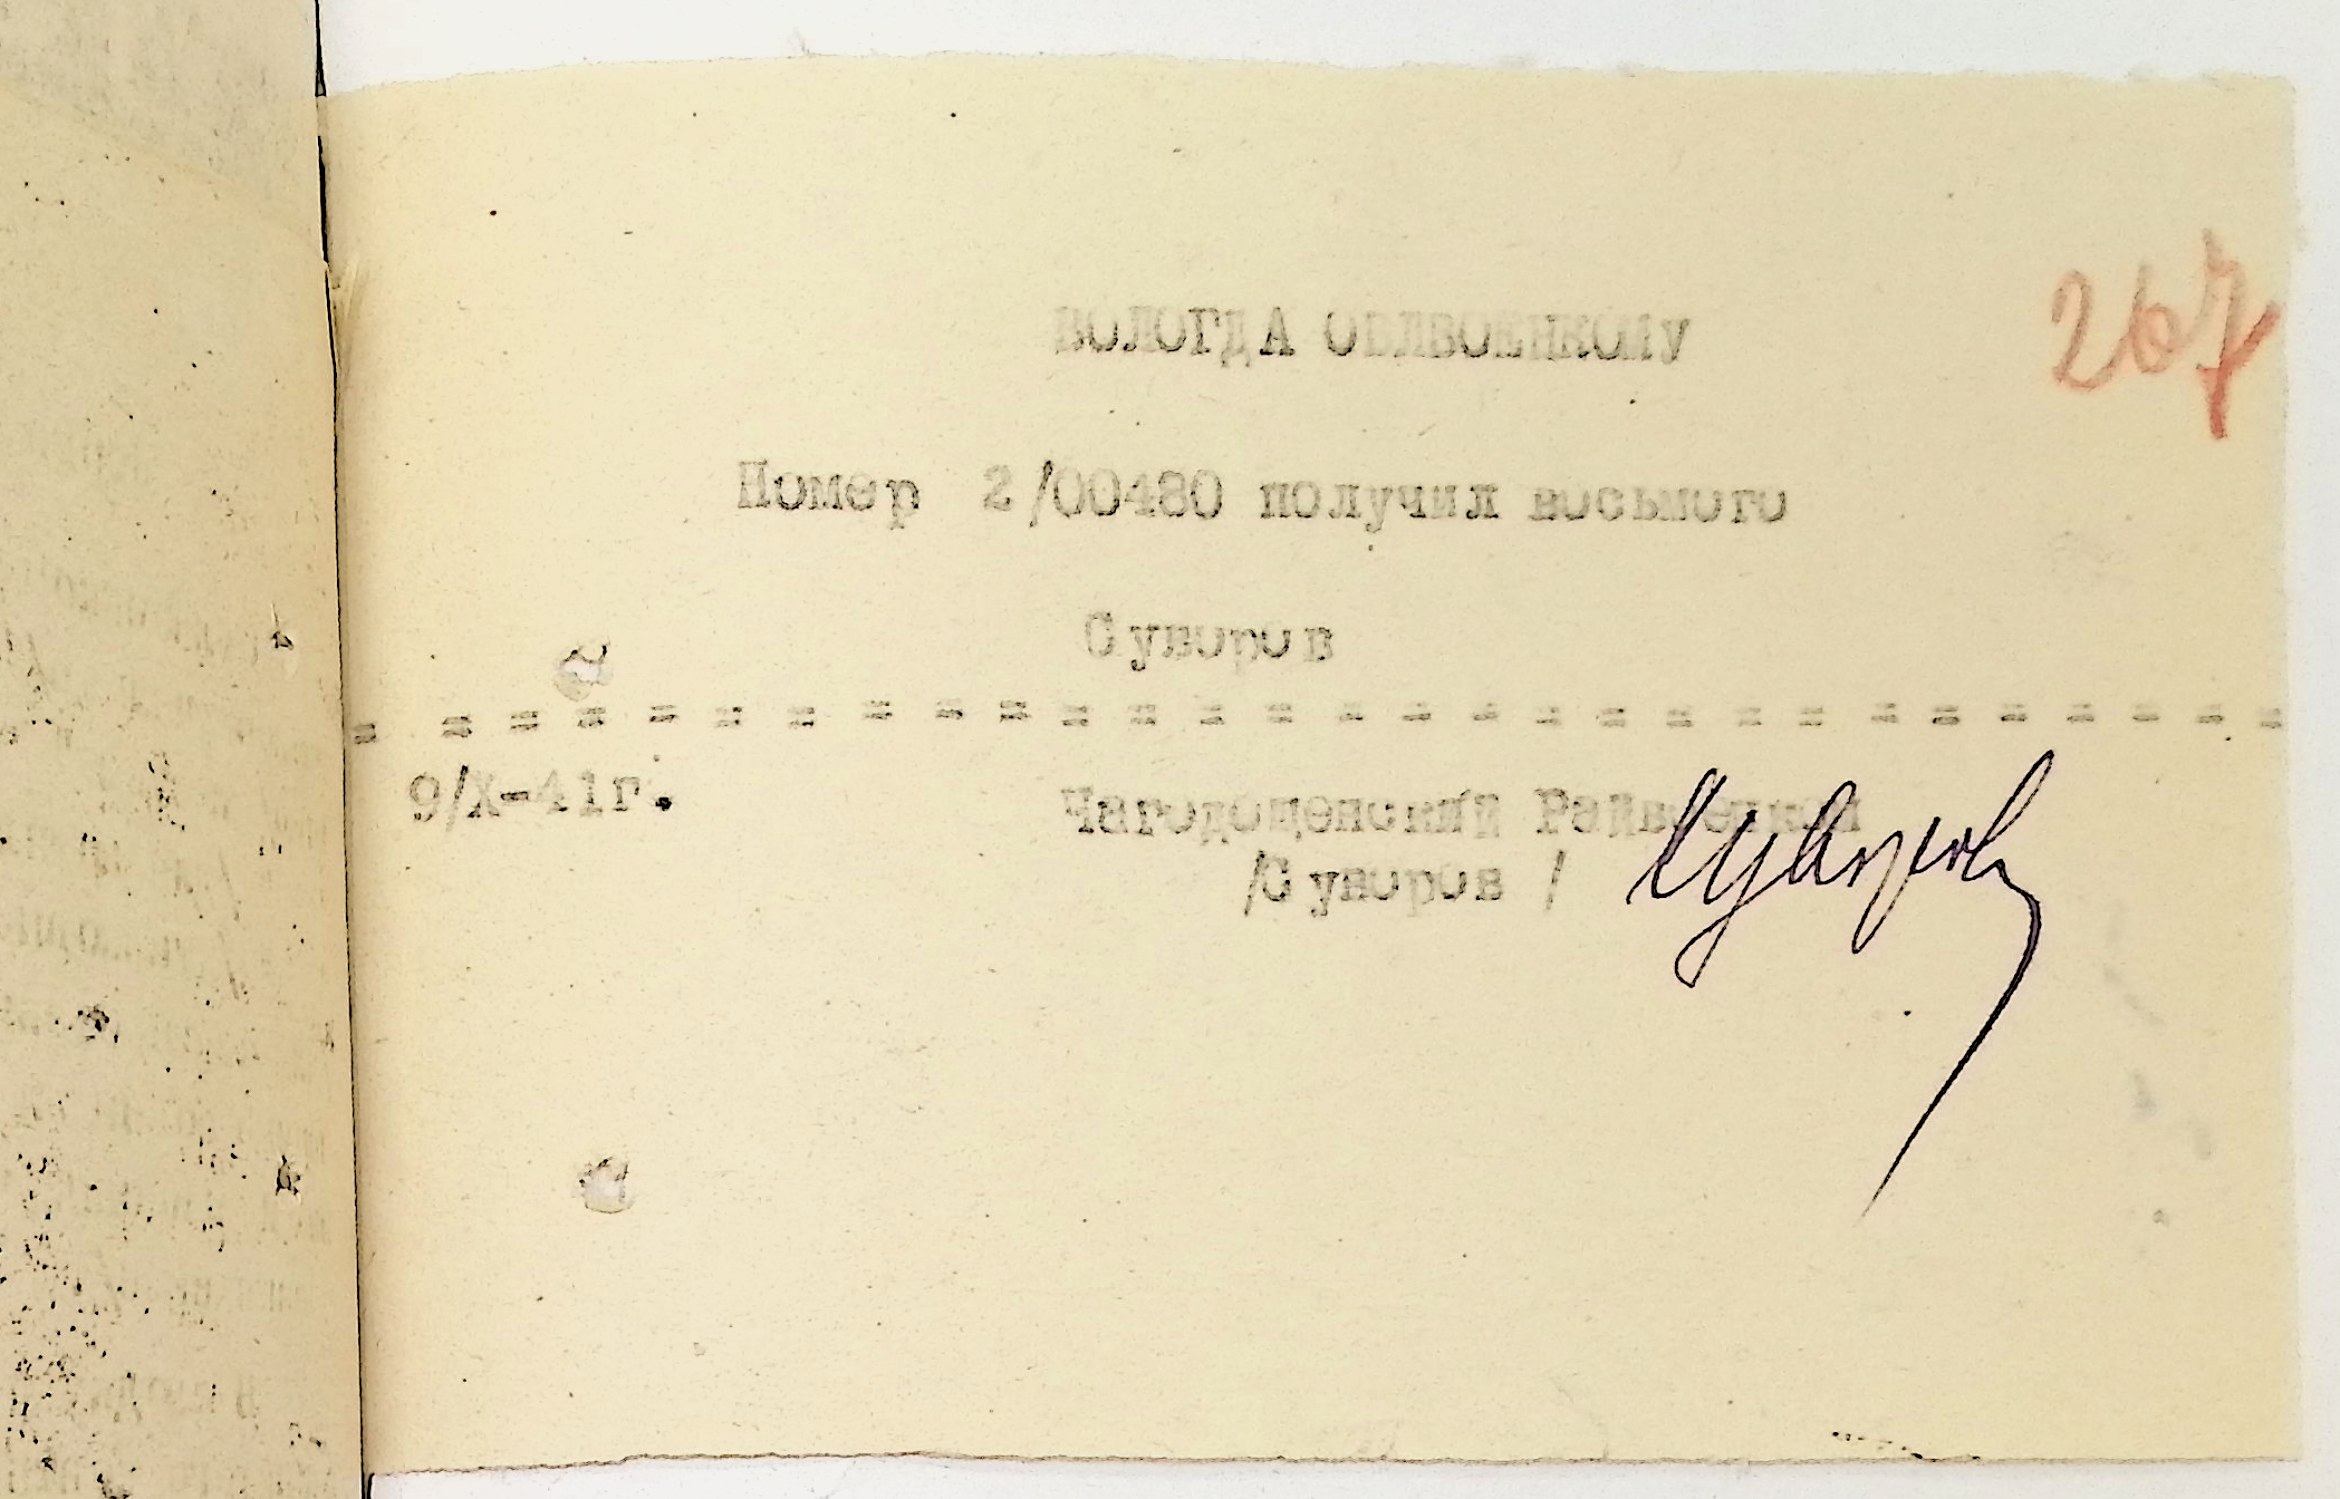 267
ВОЛОГДА ОБЛВОЕНКОМУ
Номер 2/00480 получил восьмого
Суворов
= = = = = = = = = = = = = = = = = = = = = = = = = = = = =
9/X-41г. Чагодощенский Райвоенком
/Суворов / Суворов